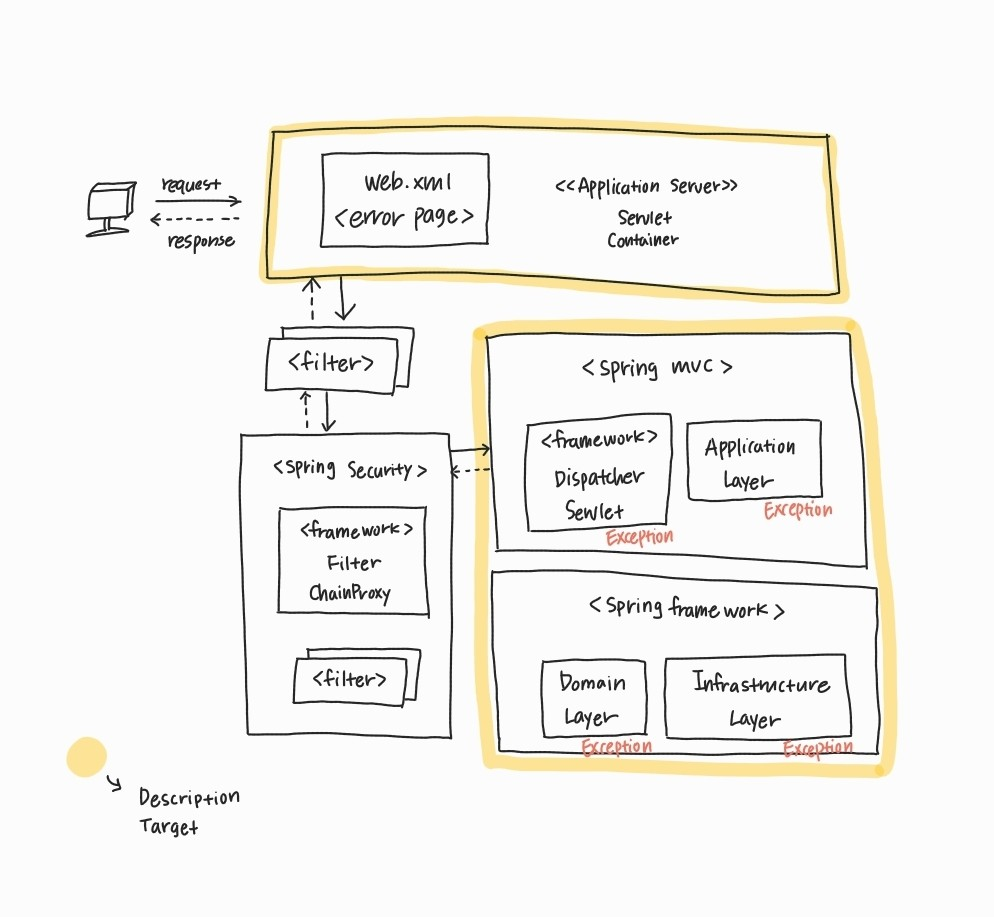 request
response
web.xml
<error page>
<<Application Server>>
Servlet
Container
<filter>
<Spring Security>
<framework>
Filter
ChainProxy
<filter>
<Spring MVC>
<framework>
Dispatcher
Servlet
Exception
Application
Layer
Exception
<Spring framework>
Domain
Layer
Exception
Infrastructure
Layer
Exception
Description
Target